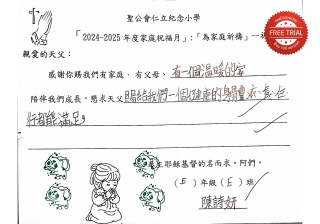 聖公會仁立紀念小學
「2024-2025年度家庭祝福月」:「為家庭祈禱」
FREE TRIAL
親愛的天父:
感謝你賜我們有家庭,有父母、有一個溫暖的家
陪伴我們成長。懇求天父賜給我們一個健康的身體,衣、食、住
行都能滿足。
主耶穌基督的名而求。阿們。
(5)年級(E)班
陳詩妍